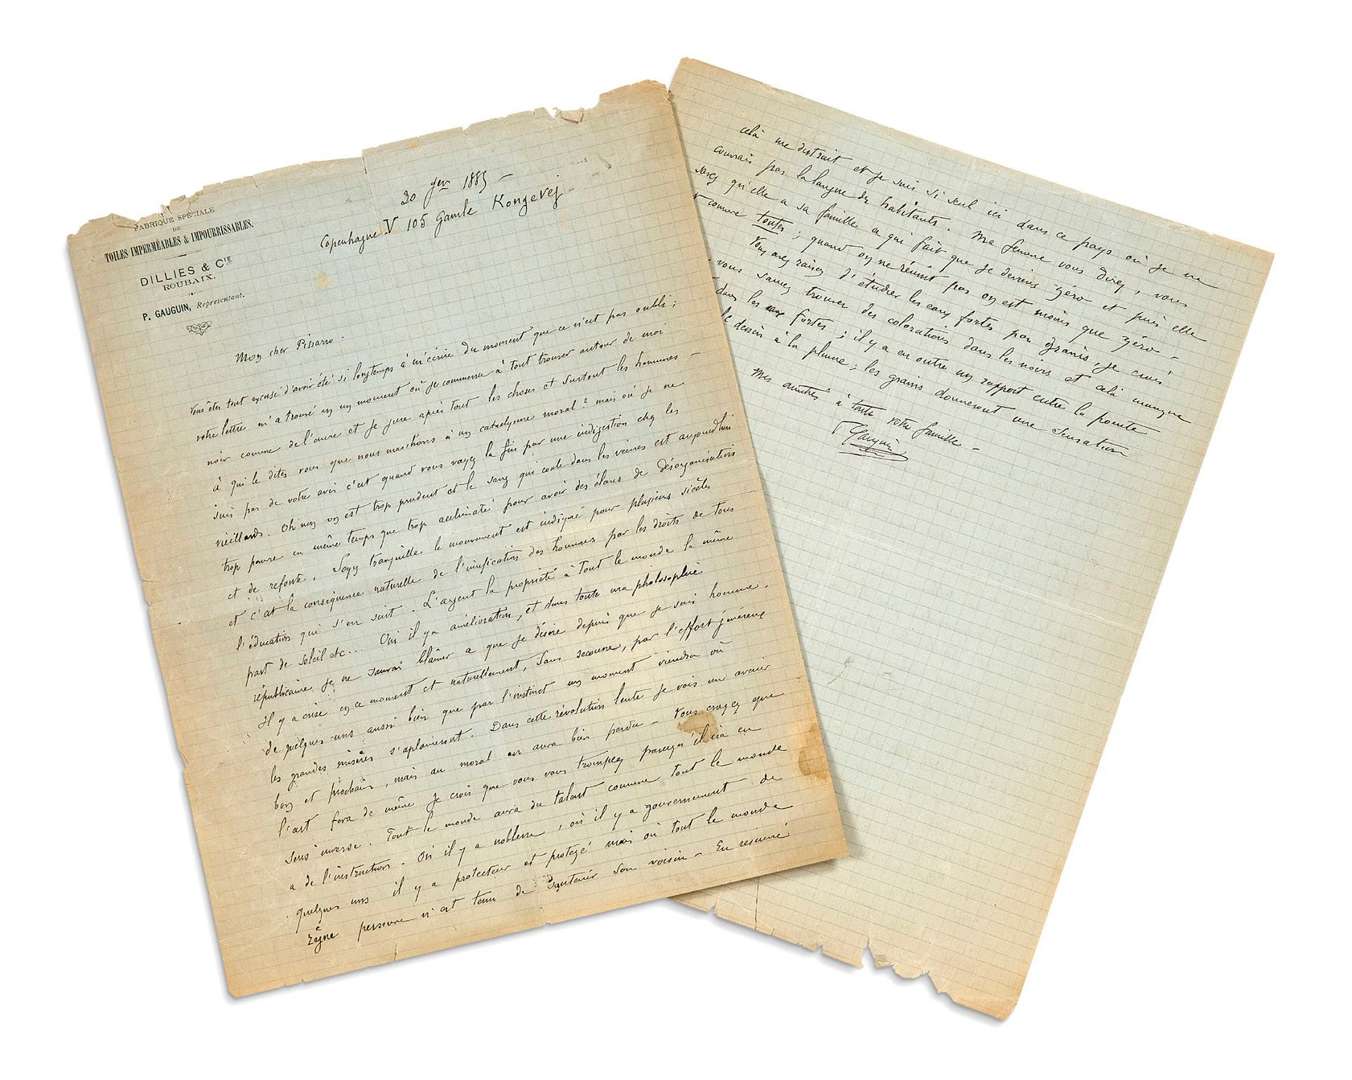 FABRIQUE SPÉCIALE
DE
TOILES IMPERMÉABLES & IMPOURRISSABLES.
DILLIES & CIE
ROUBAIX.
P. GAUGUIN, Représentant.
30 Jer 1885 -
Copenhague V 105 Gamle Kongevej
Mon cher Pissarro -
Vous êtes tout excusé d'avoir été si longtemps à m'écrire du moment que ce n'est pas oubli ;
votre lettre m'a trouvé en un moment où je commence à tout trouver autour de moi
noir comme de l'encre et je jure après tout les choses et surtout les hommes -
à qui le dites vous que nous marchons à un cataclysme moral ? mais où je ne
suis pas de votre avis c'est quand vous voyez la fin par une indigestion chez les
vieillards. Oh non on est trop prudent et le sang que coule dans les veines est aujourd'hui
trop pauvre en même temps que trop acclimaté pour avoir des élans de désorganisation
et de refonte. Soyez tranquille le mouvement est indiqué pour plusieurs siècles
et c'est la conséquence naturelle de l'unification des hommes par les droits de tous
l'éducation qui s'en suit. L'argent la propriété à tout le monde la même
part de soleil etc... Oui il y a amélioration, et dans toute ma philosophie
républicaine je ne saurai blâmer ce que je désire depuis que je suis homme.
Il y a crise en ce moment et naturellement, sans secousse, par l'effort généreux
de quelques uns aussi bien que par l'instinct un moment viendra où
les grandes misères s'aplaniront. Dans cette révolution lente je vois un avenir
bon et prochain, mais au moral on aura bien perdu - Vous croyez que
l'art fera de même je crois que vous vous trompez parceque il ira en
sens inverse. Tout le monde aura du talent comme tout le monde
a de l'instruction. Où il y a noblesse, où il y a gouvernement de
quelques uns il y a protecteur et protégé mais où tout le monde
règne personne n'est tenu de soutenir son voisin - En résumé
celà me distrait et je suis si seul ici dans ce pays où je ne
connais pas la langue des habitants. Ma femme vous direz, vous
savez qu'elle a sa famille a qui fait que je deviens zéro et puis elle
comme toutes ; quand on ne réussit pas on est moins que zéro -
Vous avez raison d'étudier les eaux fortes par grains je crois
vous saurez trouver des colorations dans les noirs et celà manque
dans les eaux fortes ; il y a en outre un rapport entre la pointe
dessin à la plume ; les grains donneront une sensation
Mes amitiés à toute votre famille -
P Gauguin